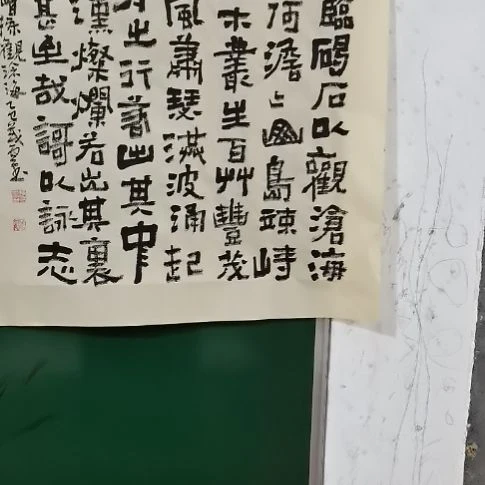 臨碣石以觀滄海
何澹〻山島竦峙
木叢生百艸豐茂
風蕭瑟洪波涌起
之行若出其中
漢燦爛若出其裏
甚至哉謌以詠志
操觀滄海乙巳